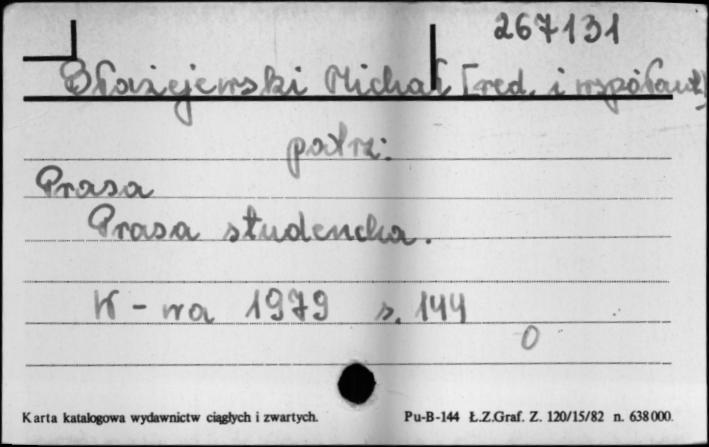 267131
Błażejewski Michał [red. i współaut.]
patrz:
Prasa
Prasa studencka.
W-wa 1979 s. 144
0
Karta katalogowa wydawnictw ciągłych i zwartych. Pu-B-144 Ł.Z.Graf. Z. 120/15/82 n. 638000.